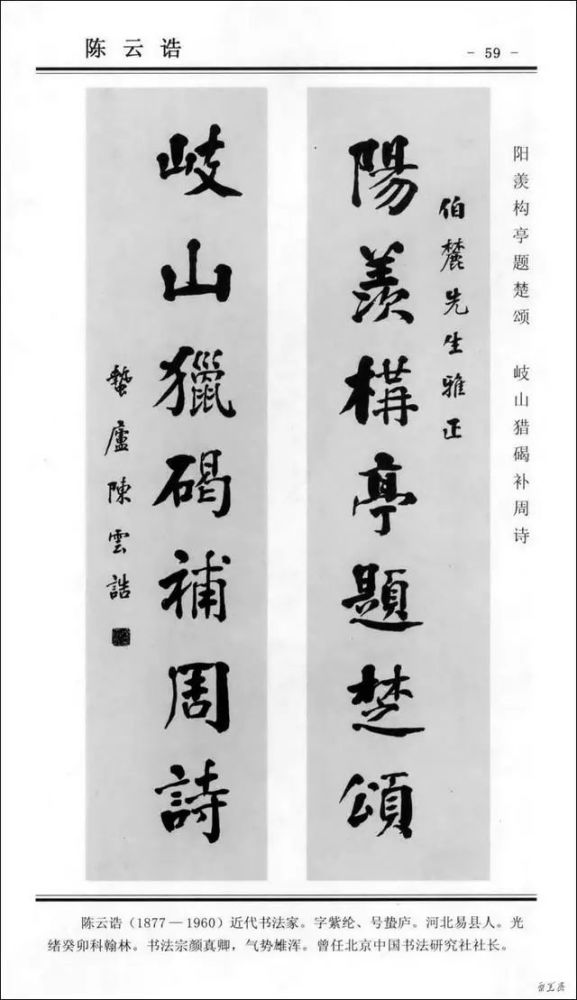 陈云诰
- 59 -
阳羡构亭题楚颂 岐山猎碣补周诗
伯麓先生雅正
陽羨構亭題楚頌
岐山獵碣補周詩
蟄廬陳雲誥
陈云诰（1877—1960）近代书法家。字紫纶、号蛰庐。河北易县人。光
绪癸卯科翰林。书法宗颜真卿，气势雄浑。曾任北京中国书法研究社社长。